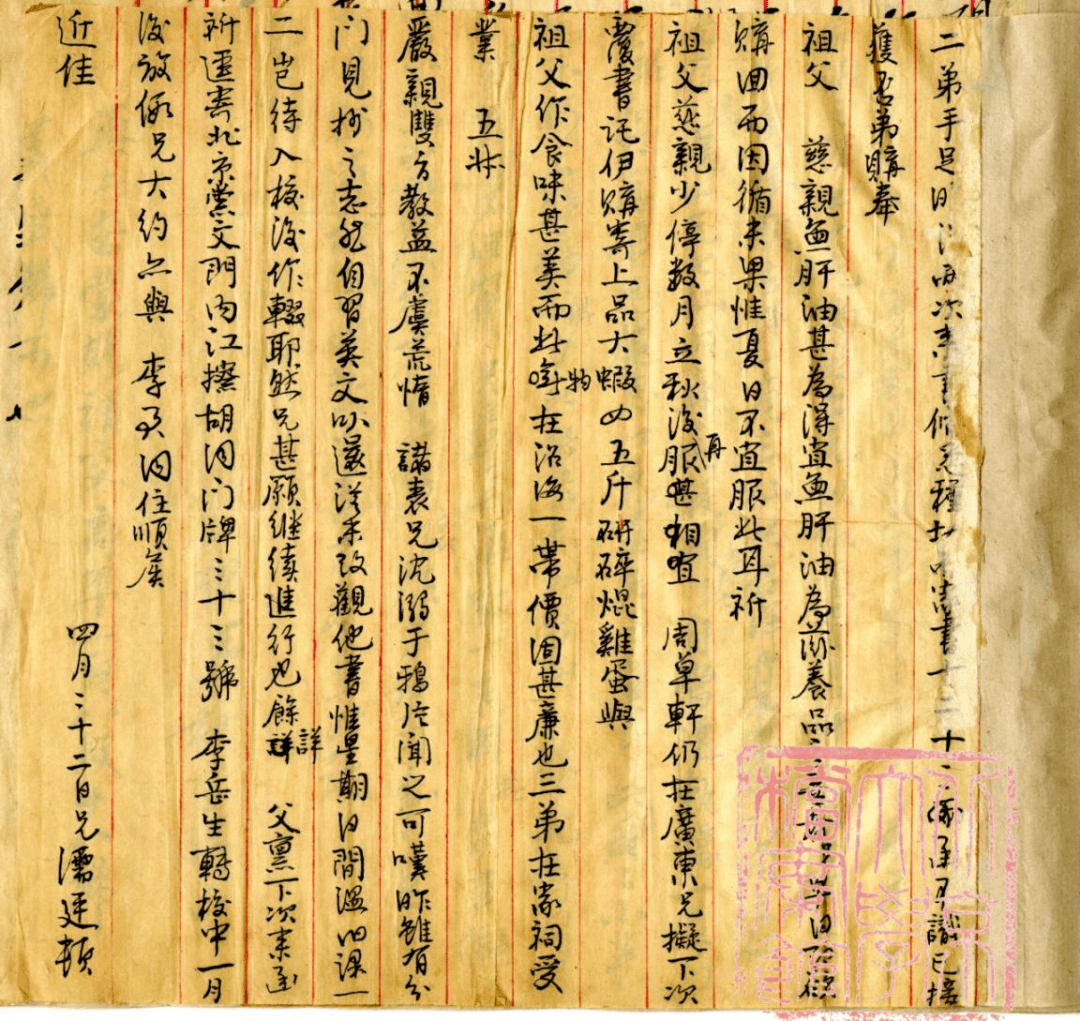 二弟手足 兩次來書 種 書十 二十 已接
獲君弟購奉
祖父 慈親魚肝油甚為得宜魚肝油為滋養品 日欲
購回而因循未果惟夏日不宜服此耳祈
祖父慈親少停數月立秋後再服甚相宜 周卓軒仍在廣東兄擬下次
覆書託伊購寄上品大蝦四五斤研碎焜雞蛋與
祖父作食味甚美而此物在沿海一帶價固甚廉也三弟在家祠受
業 五妹
嚴親雙方教益不虞荒惰 諸表兄沈溺于鴉片聞之可嘆昨雖有分
门見 之志然自習英文以還從未改觀他書惟星期日間溫旧課一
二豈待入校後作輟耶然兄甚願继续進行也餘詳 父稟下次來函
祈逕寄北京崇文門内江擦胡同门牌三十三號 李岳生轉校中一月
後放假兄大約亦與 李君同住順候
近佳 四月二十二日兄 廷頓